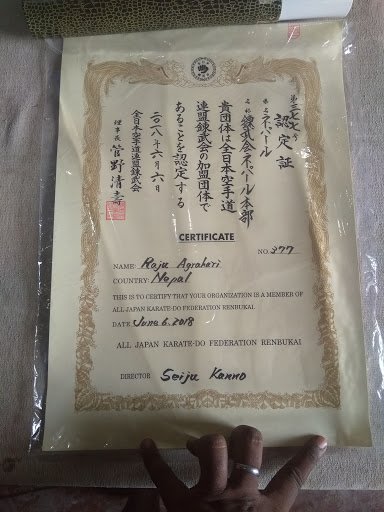 第三七七号
認定証
県名 ネパール
名称 錬武会ネパール本部
貴団体は全日本空手道
連盟錬武会の加盟団体で
あることを認定する
二〇一八年六月六日
全日本空手道連盟錬武会
理事長 菅野清壽
CERTIFICATE
NO. 377
NAME: Raju Agrahari
COUNTRY: Nepal
THIS IS TO CERTIFY THAT YOUR ORGANIZATION IS A MEMBER OF
ALL JAPAN KARATE-DO FEDERATION RENBUKAI.
DATE: June 6. 2018
ALL JAPAN KARATE-DO FEDERATION RENBUKAI
DIRECTOR: Seiju Kanno